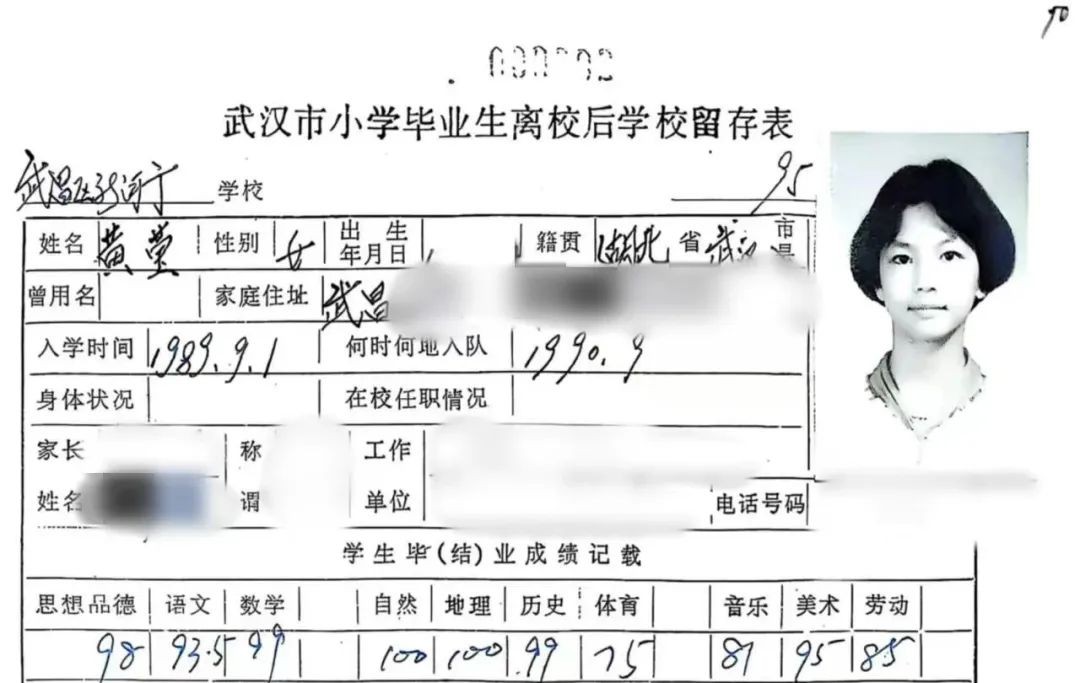 90
武汉市小学毕业生离校后学校留存表
武昌区新河 学校 95
姓名 黄莹 性别 女 出生年月日 籍贯 湖北 省 武汉 市县
曾用名 家庭住址 武昌
入学时间 1989.9.1 何时何地入队 1990.9
身体状况 在校任职情况
家长姓名 称谓 工作单位 电话号码
学生毕(结)业成绩记载
思想品德 语文 数学 自然 地理 历史 体育 音乐 美术 劳动
98 93.5 99 100 100 99 75 81 95 85